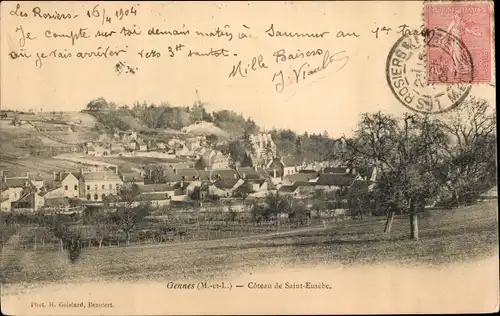 Les Rosiers 16/4 1904
Je compte sur toi demain matin à Saumur au 1er tra
où je vais arriver vers 3h
Mille Baisers
J. Viault
ROSIERS
Gennes (M.-et-L.) — Côteau de Saint-Eusèbe.
Phot. H. Goislard, Beaufort.